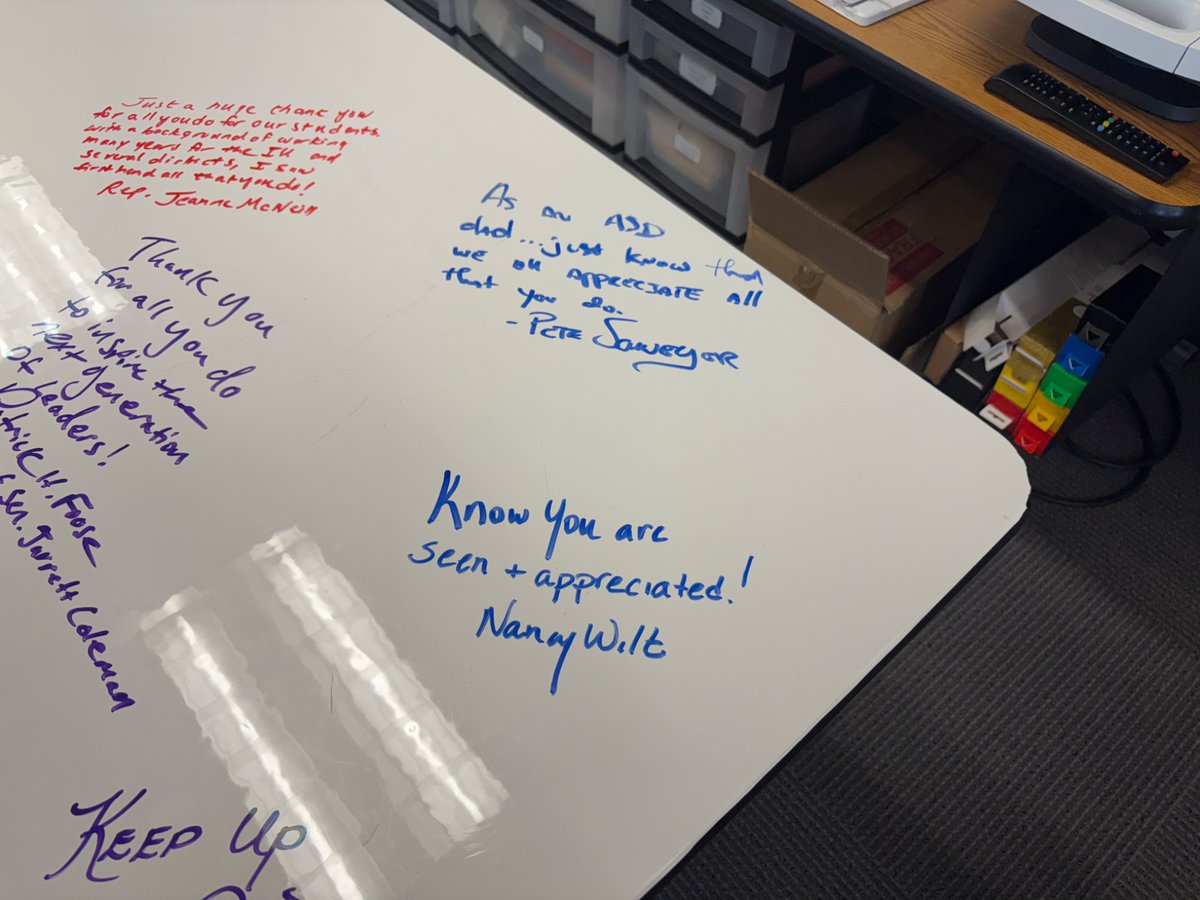 Just a huge thank you
for all you do for our students
with a background of working
many years for the IU and
several districts, I saw
first hand all that you do!
Rep. Jeanne McNeill
Thank you
for all you do
to inspire the
next generation
of leaders!
Patrick H. Foose
Sen. Jarrett Coleman
As an ASD
dad...just know that
we all appreciate all
that you do.
- Pete Sawyer
Know you are
seen + appreciated!
Nancy Wilt
Keep up